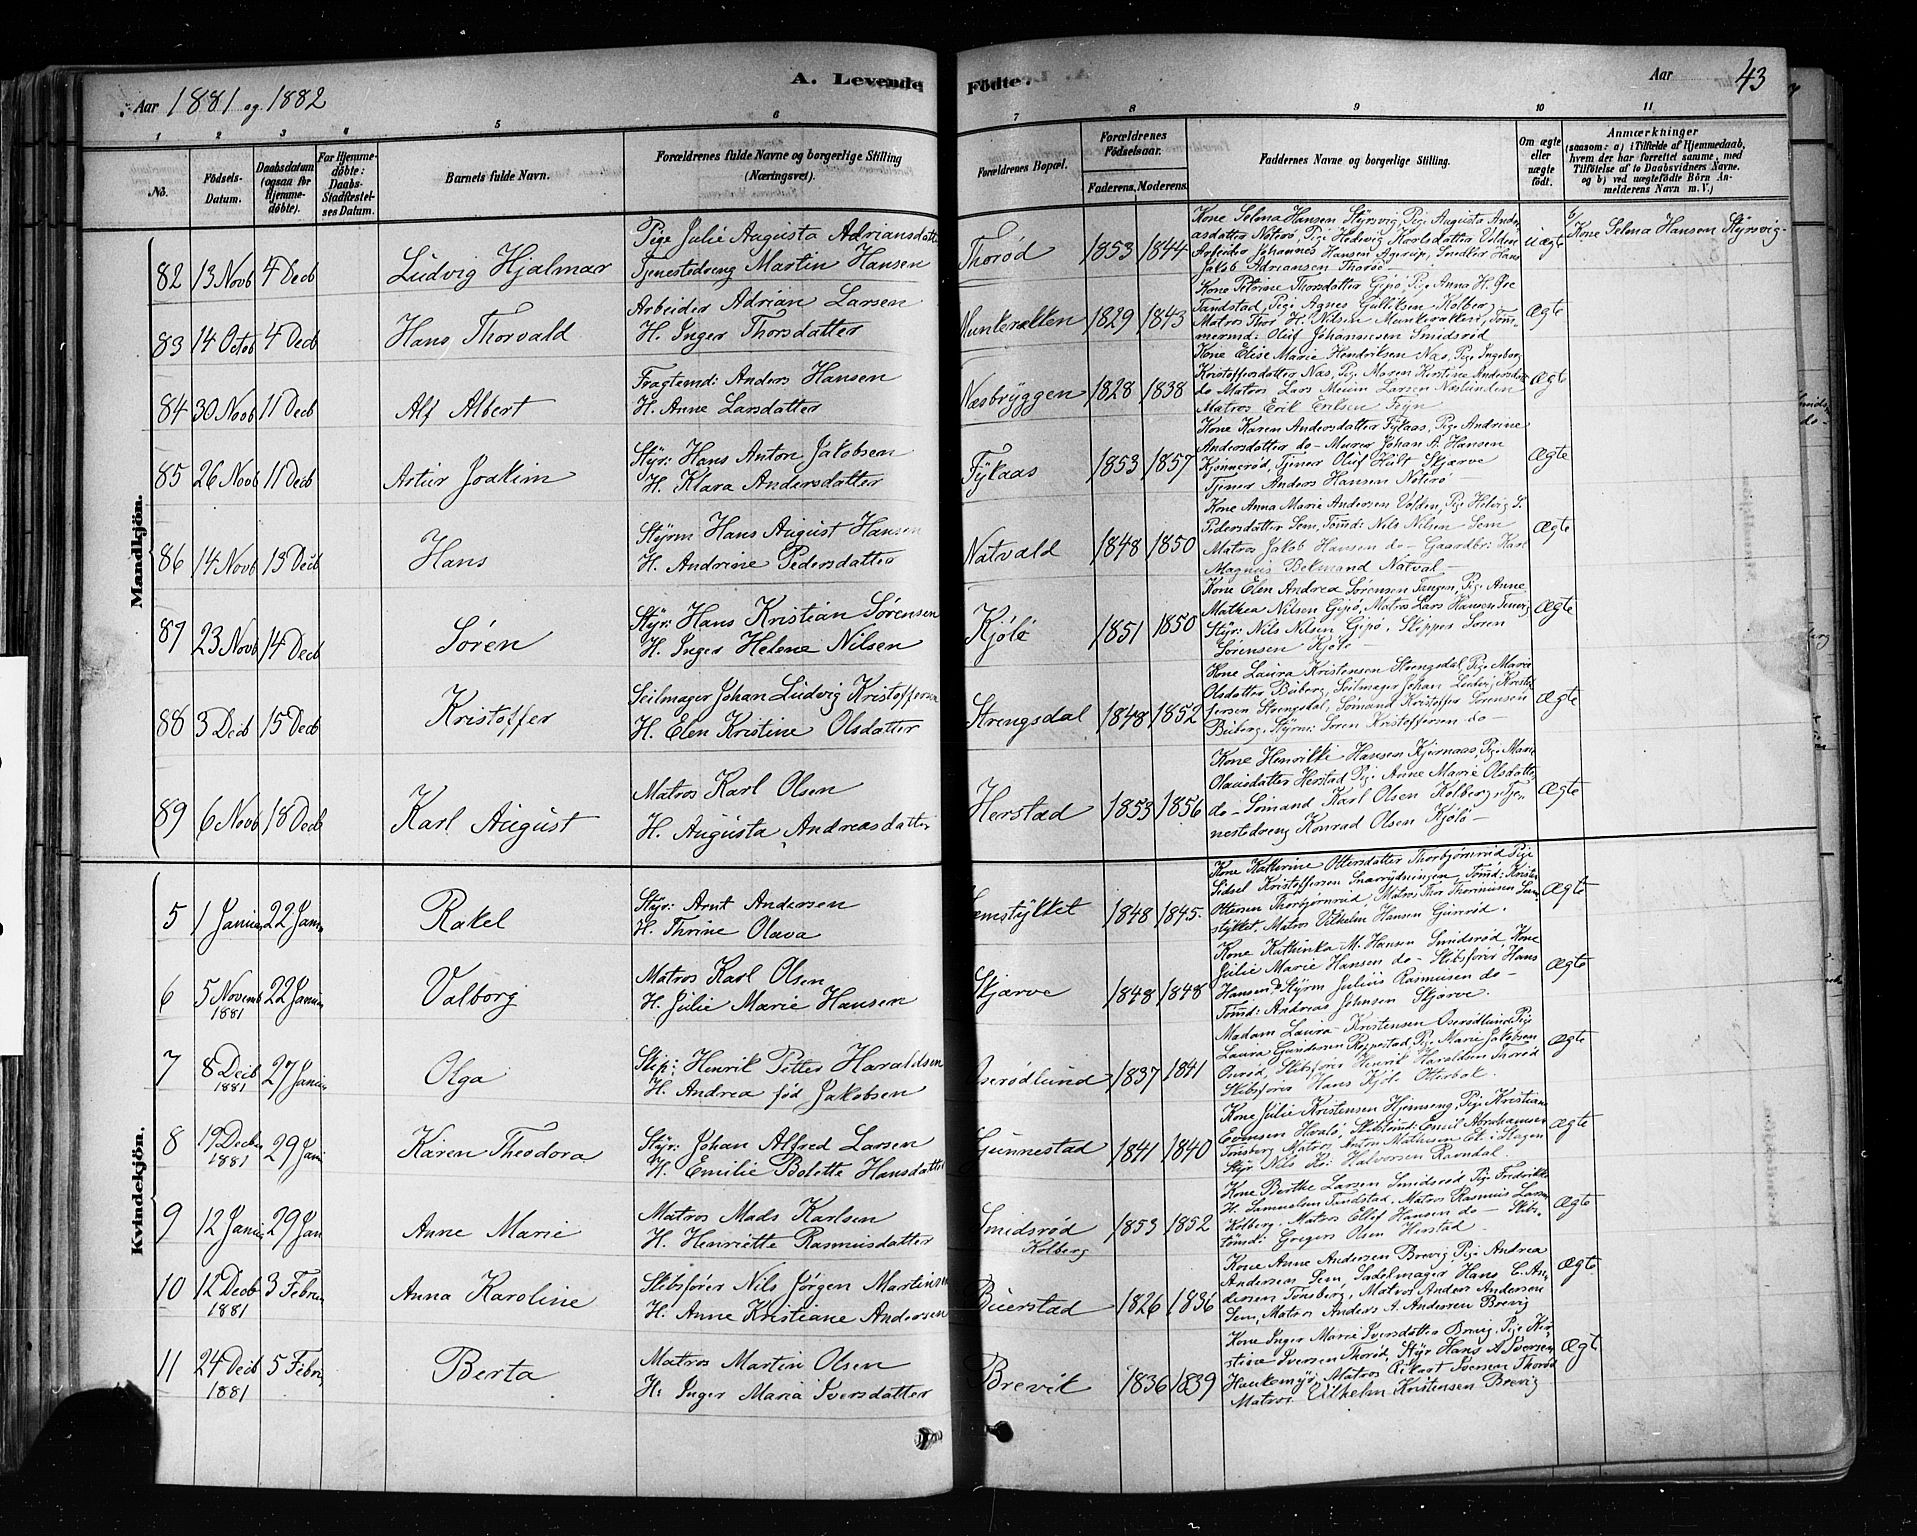 A. Levende Födte.
Aar 1881 og 1882
Aar 43
1 2 3 4 5 6 7 8 9 10 11
No.
Födsels-Datum.
Daabsdatum (ogsaa for Hjemme-döbte).
For Hjemme-döbte: Daabs-Stadfæstel-ses Datum.
Barnets fulde Navn.
Forældrenes fulde Navne og borgerlige Stilling (Næringsvei).
Forældrenes Bopæl.
Forældrenes Födselsaar.
Faderens. Moderens.
Faddernes Navne og borgerlige Stilling.
Om ægte eller uægte födt.
Anmærkninger
(saasom: a) i Tilfælde af Hjemmedaab, hvem der har forrettet samme, med Tilföielse af to Daabsvidners Navne. og b) ved uægtefödte Börn Anmelderens Navn m. V.)
Mandkjön.
82 13 Novb 4 Decb Ludvig Hjalmar
Pige Julie Augusta Adriansdatt
Tjenestedreng Martin Hansen
Thorød 1853 1844
Kone Selma Hansen Styrsvig, Pige Augusta Andre-
asdatter Noterø, Pige Hedevig Karlsdatter Volden
Arbeider Johannes Hansen Agerup, Smedlær Hans
Jakob Adriansen Thorød
Uægte
b/ Kone Selma Hansen Styrsvig
83 14 Octob 4 Decb Hans Thorvald
Arbeider Adrian Larsen
H. Inger Thorsdatter
Munkerækken 1829 1843
Kone Petrine Thorsdatter Gipø, Pige Anna H. Øre
Tandstad, Pige Agnes Gulliksen Kolberg
Matros Thor H. Nilsen Munkerækken, Tøm-
mermd: Oluf Johannesen Smidsrød
Ægte
84 30 Novb 11 Decb Alf Albert
Fragtemd: Anders Hansen
H. Anne Larsdatter
Næsbryggen 1828 1838
Kone Elise Marie Hendriksen Næs, Pige Ingeborg
Kristoffersdatter Næs, Pige Maren Kirstine Andersdatt
do Matros Lars Larsen Næslunden
Matros Erik Eriksen Føyn
Ægte
85 26 Novb 11 Decb Artur Joakim
Styr: Hans Anton Jakobsen
H. Klara Andersdatter
Fykaas 1853 1857
Kone Karen Andersdatter Fykaas, Pige Andrine
Andersdatter do - Murer Johan A. Hansen
Kjønnerød, Tjener Oluf Holt Skjærve
Tjener Anders Hansen Noterø
Ægte
86 14 Novb 13 Decb Hans
Styrm Hans August Hansen
H. Andrine Pedersdatter
Natvald 1848 1850
Kone Anna Marie Andersen Volden, Pige Helvig S.
Pedersdatter Sem, Tømd: Nils Nilsen Sem
Matros Jakob Hansen do - Gaardbr: Karl
Magnus Bekmand Natval
Ægte
87 23 Novb 14 Decb Søren
Styr: Hans Kristian Sørensen
H. Inger Helene Nilsen
Kjølø 1851 1850
Kone Elen Andrea Sørensen Tangen, Pige Anne
Mathea Nilsen Gipø, Matros Lars Hansen
Styr: Nils Nilsen Gipø, Skipper Søren
Sørensen Kjølø
Ægte
88 3 Decb 15 Decb Kristoffer
Seilmager Johan Ludvig Kristoffersen
H. Elen Kristine Olsdatter
Strengsdal 1848 1852
Kone Laura Kristensen Strengsdal, Pige Marie
Olsdatter Buberg, Seilmager Johan Ludvig Kristof-
fersen Strengsdal, Sømand Kristoffer Sørensen
Buberg, Styrm: Søren Kristoffersen do
Ægte
89 6 Novb 18 Decb Karl August
Matros Karl Olsen
H. Augusta Andreasdatter
Herstad 1853 1856
Kone Henrikke Hansen Kjernaas, Pige Marie
Olausdatter Herstad, Pige Anne Marie Olsdatter
do - Sømand Karl Olsen Kolberg, Tje-
nestedreng Konrad Olsen Kjølø
Ægte
Kvindekjön.
5 1 Januar 22 Janu Rakel
Styr: Arnt Andersen
H. Thrine Olava
Semstykket 1848 1845.
Kone Katherine Ottersdatter Thorbjørnrød Pige
Sidsel Kristoffersen Snarrydningen, Tømd: Kristen
Ottersen Thorbjørnrud, Matros Thor Thorensen Sem-
stykket, Matros Vilhelm Hansen Gunrød.
Ægte
6 5 Novemb 1881 22 Janu Valborg
Matros Karl Olsen
H. Julie Marie Hansen
Skjærve 1848 1848
Kone Kathinka M. Hansen Smidsrød, Kone
Julie Marie Hansen do - Skibsfører Hans
Hansen do Styrm Julius Rasmusen do -
Tømd: Andreas Johnsen Skjærve.
Ægte
7 8 Decb 1881 27 Janu Olga
Skip: Henrik Petter Haraldsen
H. Andrea fød Jakobsen
Oserødlund 1837 1841
Madam Laura Kristensen Oserødlund, Pige
Laura Gundersen Røppestad, Pige Marie Jakobsen
Onrød, Skibsfører Henrik Haraldsen Thorød
Skibsfører Hans Kjølø Otterbek.
Ægte
8 19 Decbr 1881 29 Janu Karen Theodora
Styr: Johan Alfred Larsen
H. Emilie Bolette Hansdatter
Gunnestad 1841 1840
Kone Julie Kristensen Hjemseng, Pige Kristiane
Evensen Hvale, Skibstmd: Emil Abrahamsen
Tønsberg Matros Anton Mathisen Ek i Slagen
Styr Nils Kr: Halvorsen Ravndal
Ægte
9 12 Janu 29 Jan Anne Marie
Matros Mads Karlsen
H. Henriette Rasmusdatter
Smidsrød Kolberg 1853 1852
Kone Berthe Larsen Smidsrød Pige Fredrikke
H. Samuelsen Tandstad, Matros Rasmus Larsen
Kolberg. Matros Ellef Hansen do - Skibs-
tømd: Gregers Olsen Herstad
Ægte
10 12 Decb 1881 3 Febru Anna Karoline
Skibsfører Nils Jørgen Martinsen
H. Anne Kristiane Andersen
Buerstad 1826 1836
Kone Anne Andersen Brevig Pige Andrea
Andersen Sem, Sadelmager Hans C. An-
dersen Tønsberg, Matros Anders Andersen
Sem, Matros Anders A. Andersen Brevig
Ægte
11 24 Decb 1881 5 Febru Berta
Matros Martin Olsen
H: Inger Maria Iversdatter
Brevik 1836 1839
Kone Inger Marie Iversdatter Brevig, Pige Kir-
stine Iversen Thorød, Styr Hans A Iversen
Haukemyr, Matros Rikart Iversen Thorød
Matros Vilhelm Kristensen Brevig
Ægte